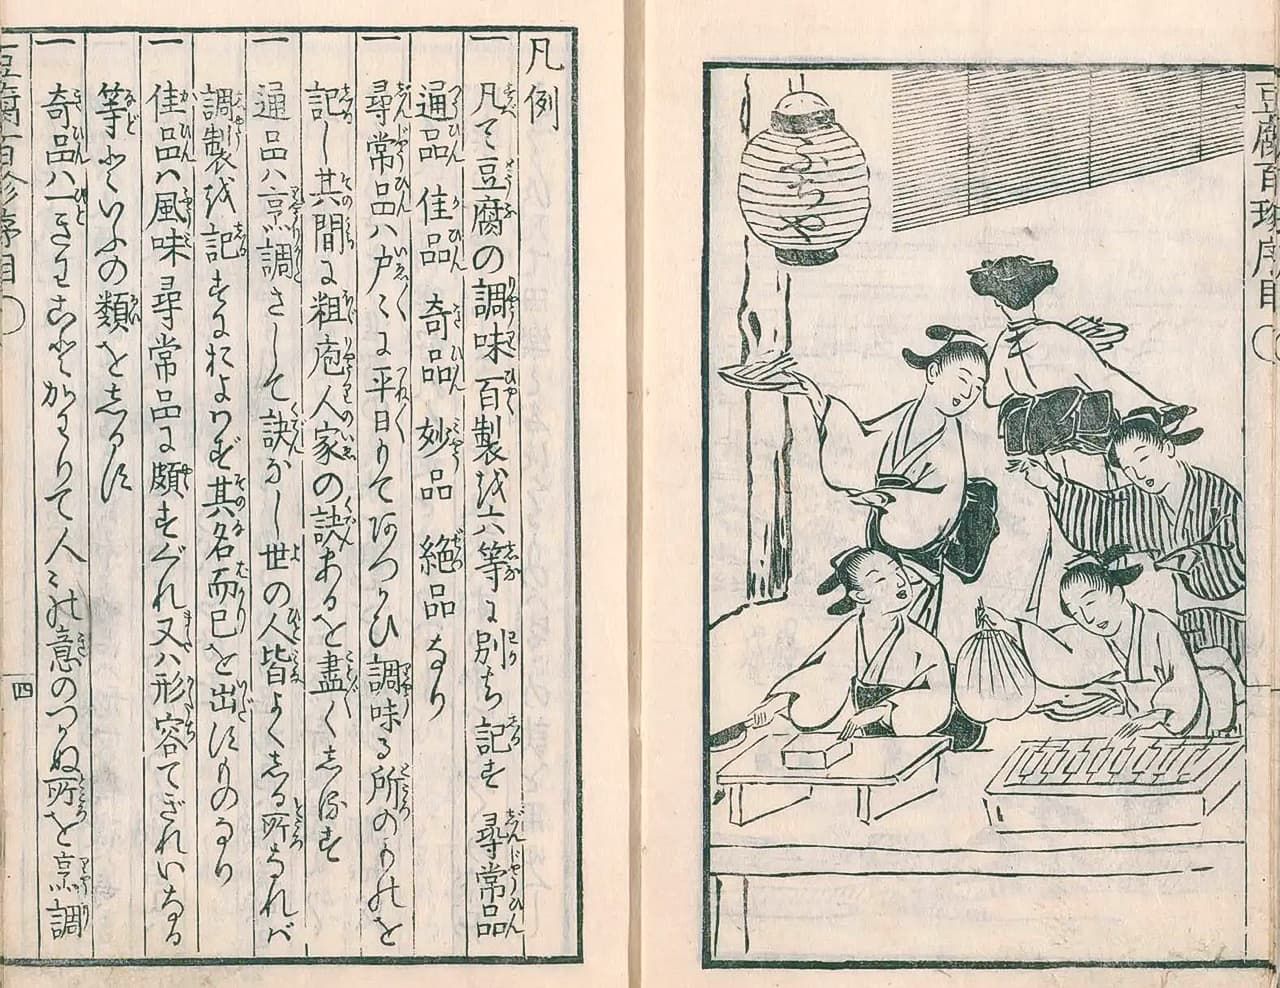 豆腐百珍序目
ふぢや
凡例
一 凡て豆腐の調味百製を六等に別ち記す 尋常品
通品 佳品 奇品 妙品 絶品なり
一 尋常品ハ戸々に平日もてあつかひ調味る所のものを
記し其間に粗庖人家の訣あるを盡くしるす
一 通品ハ烹調さして訣なし世の人皆よくしる所なれバ
調製を記すにおよはず其名而已を出すものなり
一 佳品ハ風味尋常品に頗すぐれ又ハ形容てぎれいなる
等といふの類をしるす
一 奇品ハ一きわことかわりて人の意のつかぬ所を烹調
豆腐百珍序目
四